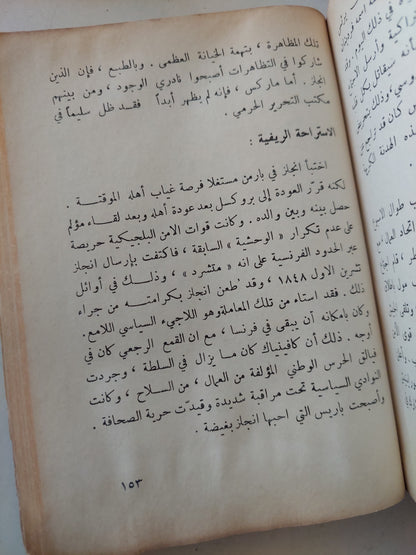 تلك المظاهرة ، بتهمة الخيانة العظمى . وبالطبع ، فإن الذين
شاركوا في التظاهرات أصبحوا نادري الوجود ، ومن بينهم
انجلز . أما ماركس ، فإنه لم يظهر أبداً فقد ظل سليماً في
مكتب التحرير الحرمي .
الاستراحة الريفية :
اختبأ انجلز في بارمن مستغلا فرصة غياب أهله الموقتة .
لكنه قرّر العودة إلى بروكسل بعد عودة أهله وبعد لقاء مؤلم
حصل بينه وبين والده . وكانت قوات الامن البلجيكية حريصة
على عدم تكرار « الوحشية » السابقة ، فاكتفت بإرسال انجلز
عبر الحدود الفرنسية على انه « متشرد » ، وذلك في أوائل
تشرين الاول ١٨٤٨ ، وقد طعن انجلز بكرامته من جراء
ذلك . فقد استاء من تلك المعاملة وهو اللاجيء السياسي اللامع .
وكان بامكانه أن يبقى في فرنسا ، مع ان القمع الرجعي كان في
أوجه . ذلك أن كافينياك كان ما يزال في السلطة ، وجردت
فيالق الحرس الوطني المؤلفة من العمال ، من السلاح ، وكانت
النوادي السياسية تحت مراقبة شديدة وقيدت حرية الصحافة .
وأصبحت باريس التي احبها انجلز بغيضة .
١٥٣